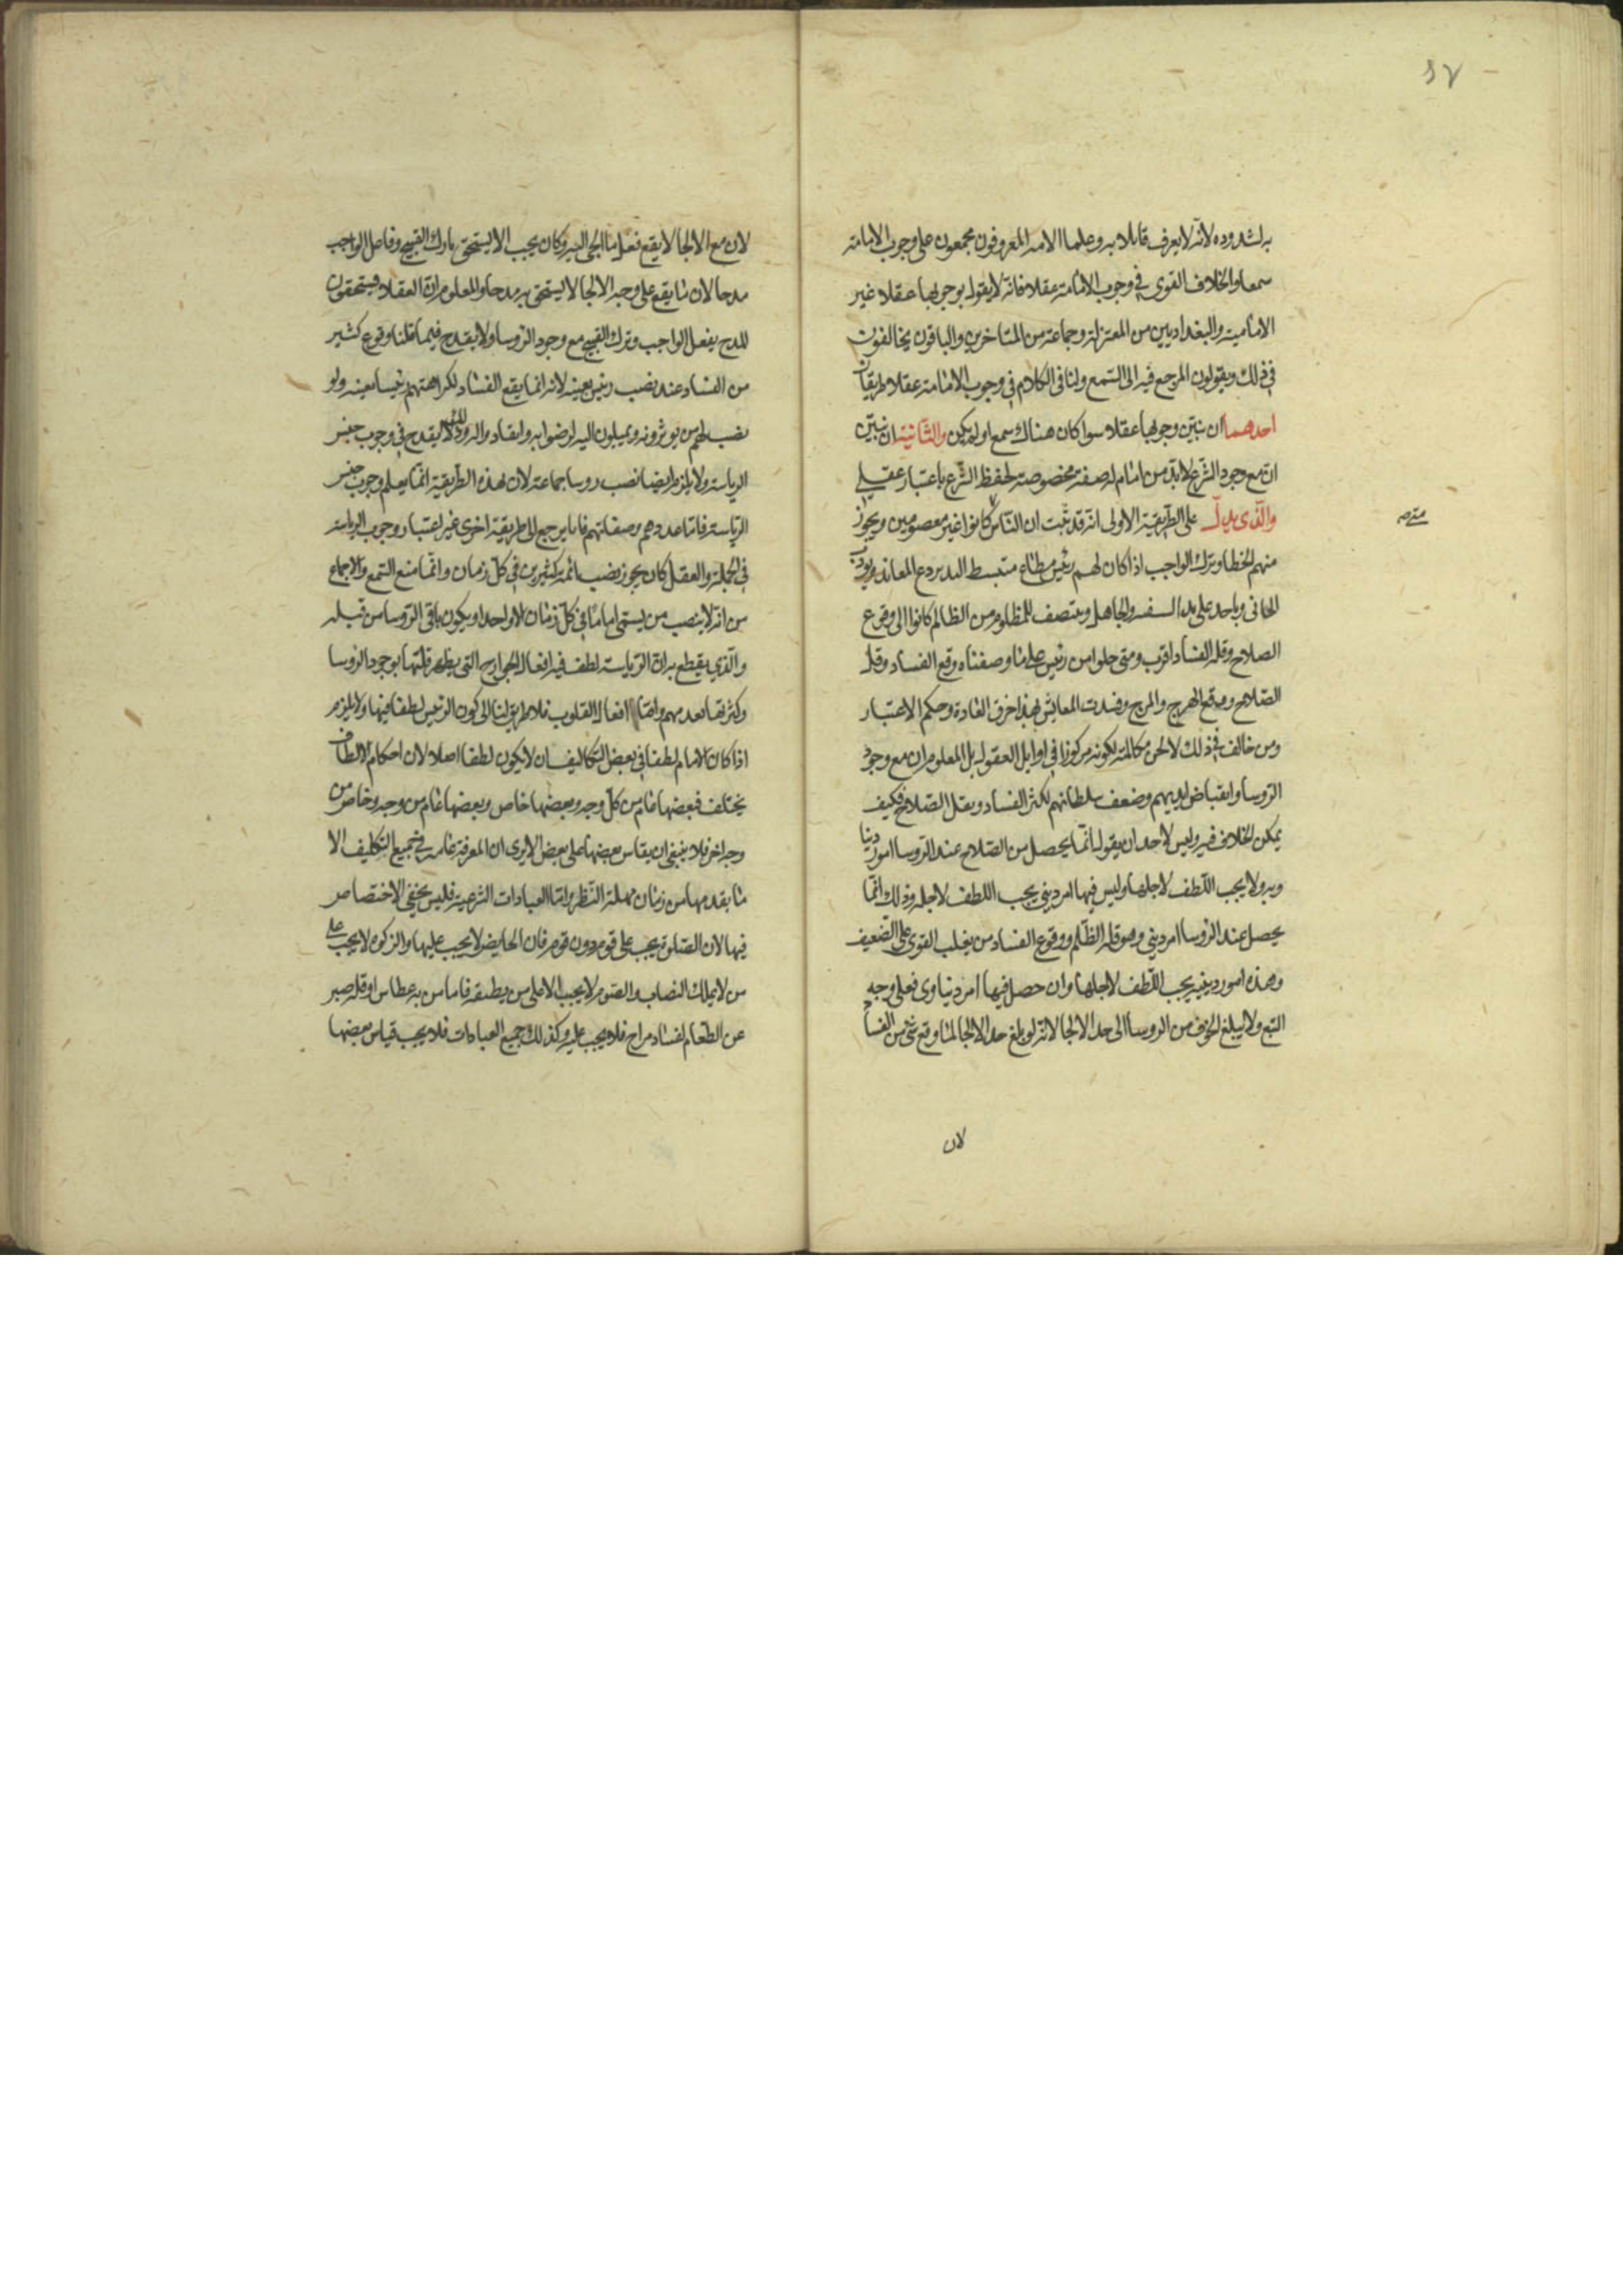 ٤٧
به لشدوده لانه لا يعرف قايلا به وعلما الامه المعروفون مجمعون على وجوب الامامة
سمعا والخلاف القوى في وجوب الامامة عقلا فانه لا يقول بوجوبها عقلا غير
الامامية والبغداديين من المعتزلة وجماعة من المتاخرين والباقون يخالفون
في ذلك ويقولون المرجع فيه الى السمع ولنا في الكلام في وجوب الامامة عقلا طريقان
احدهما ان نبين وجوبها عقلا سوا كان هناك سمع او لم يكن والثانية ان نبين
ان مع وجود الشرع لابد من امام له صفة مخصوصة لحفظ الشرع باعتبار عقلي
والذى يدل على الطريقة الاولى انه قد ثبت ان الناس كانوا غير معصومين ويجوز
منهم الخطا وترك الواجب اذا كان لهم رئيس مطاع منبسط اليد يردع المعاند ويودب
الجانى وياخد على يد السفيه والجاهل وينتصف للمظلوم من الظالم كانوا الى وقوع
الصلاح وقلة الفساد اقرب ومتى خلوا من رئيس على ما وصفناه وقع الفساد وقل
الصلاح ووقع الهرج والمرج وفسدت المعايش بهذا جرت العادة وحكم الاعتبار
ومن خالف في ذلك لا تحسن مكالمته لكونه مركوزا في اوايل العقول بل المعلوم ان مع وجود
الروسا وانقباض ايديهم وضعف سلطانهم يكثر الفساد ويقل الصلاح فكيف
يمكن الخلاف فيه وليس لاحد ان يقول انما يحصل من الصلاح عند الروسا امور دنيا
ويه ولا يجب اللطف لاجلها وليس فيها امر ديني يجب اللطف لاجله وذلك انما
يحصل عند الروسا امر ديني وهو قلة الظلم ووقوع الفساد من يغلب القوى على الضعيف
وهذه امور دينيه يجب اللطف لاجلها وان حصل فيها امر دنياوى فعلى وجه
التبع ولا يبلغ الخوف من الروسا الى حد الالجا لانه لو بلغ حد الالجا لما وقع شى من الفساد
لان
لان مع الالجا لا يقع فعل ما الجى اليه وكان يجب الا يستحق تارك القبيح وفاعل الواجب
مدحا لان ما يقع على وجه الالجا لا يستحق به مدحا والمعلوم ان العقلا يستحقون
المدح بفعل الواجب وترك القبيح مع وجود الروسا ولا يقدح فيما قلنا وقوع كثير
من الفساد عند نصب رئيس بعينه لانه انما يقع الفساد لكراهتهم رئيسا بعينه ولو
نصب لهم من يوثرونه ويميلون اليه لرضوا به وانقادوا له وذلك لا يقدح في وجوب جنس
الرياسة ولا يلزم ايضا نصب روسا جماعة لان بهذه الطريقة انما يعلم وجوب جنس
الرياسة فاما عددهم وصفاتهم فانا يرجع الى طريقة اخرى غير اعتبار وجوب الرياسة
في الجملة والعقل كان يجوز نصب ائمة كثيرين في كل زمان وانما منع السمع والاجماع
من انه لا ينصب من يسمى اماما في كل زمان الا واحدا ويكون باقى الروسا من قبله
والذي يقطع به ان الرياسة لطف فيه افعال الجوارح التى يظهر قلتها بوجود الروسا
وكثرتها بعدمهم واما افعال القلوب فلا طريق لنا الى كون الرئيس لطفا فيها ولا يلزم
اذا كان الامام لطفا في بعض التكاليف ان لا يكون لطفا اصلا لان احكام الالطاف
يختلف فبعضها عام من كل وجه وبعضها خاص وبعضها عام من وجه وخاص من
وجه اخر فلا ينبغى ان يقاس بعضها على بعض الا يرى ان المعرفة عامه في جميع التكليف الا
ما يقدمها من زمان مهلة النظر واما العبادات الشرعية فليس يخفى الاختصاص
فيها لان الصلوة يجب على قوم دون قوم فان الحايض لا يجب عليها والزكوه لا يجب على
من لا يملك النصاب والصوم لا يجب الا على من يطيقه فاما من به عطاس او قلة صبر
عن الطعام لفساد مزاج فلا يجب عليه وكذلك جميع العبادات فلا يجب قياس بعضها